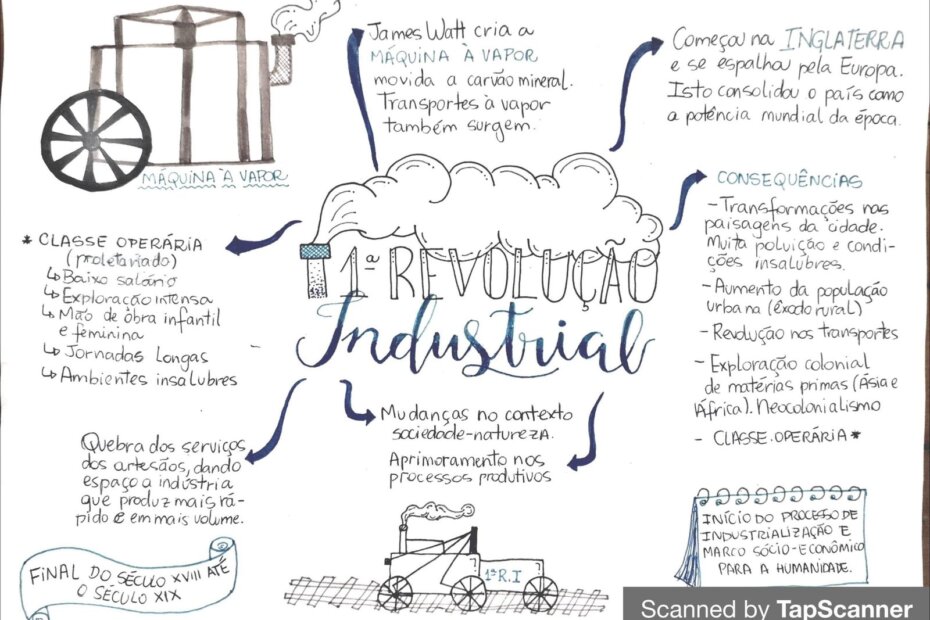 James Watt cria a
MÁQUINA À VAPOR
movida a carvão mineral.
Transportes à vapor
também surgem.
Começou na INGLATERRA
e se espalhou pela Europa.
Isto consolidou o país como
a potência mundial da época.
MÁQUINA À VAPOR
CONSEQUÊNCIAS
- Transformações nas
paisagens da cidade.
Muita poluição e condi-
ções insalubres.
- Aumento da população
urbana (êxodo rural)
- Revolução nos transportes
- Exploração colonial
de matérias primas (Ásia e
África). Neocolonialismo
- CLASSE OPERÁRIA *
* CLASSE OPERÁRIA
(proletariado)
↳ Baixo salário
↳ Exploração intensa
↳ Mão de obra infantil
e feminina
↳ Jornadas longas
↳ Ambientes insalubres
1ª REVOLUÇÃO
Industrial
Mudanças no contexto
sociedade-natureza.
Aprimoramento nos
processos produtivos
Quebra dos serviços
dos artesãos, dando
espaço a indústria
que produz mais rá-
pido e em mais volume.
FINAL DO SÉCULO XVIII ATÉ
O SÉCULO XIX
1ª R.I
INÍCIO DO PROCESSO DE
INDUSTRIALIZAÇÃO E
MARCO SÓCIO-ECONÔMICO
PARA A HUMANIDADE.
Scanned by TapScanner